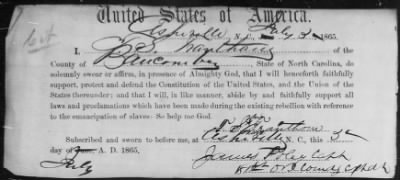 United States of America.
Asheville N. C., July 3 1865.
I, of the
County of Buncombe, State of North Carolina, do
solemnly swear or affirm, in presence of Almighty God, that I will henceforth faithfully
support, protect and defend the Constitution of the United States, and the Union of the
States thereunder; and that I will, in like manner, abide by and faithfully support all
laws and proclamations which have been made during the existing rebellion with reference
to the emancipation of slaves: So help me God.
Subscribed and sworn to before me, at Asheville N. C., this 3
day of June, A. D. 1865,
July James